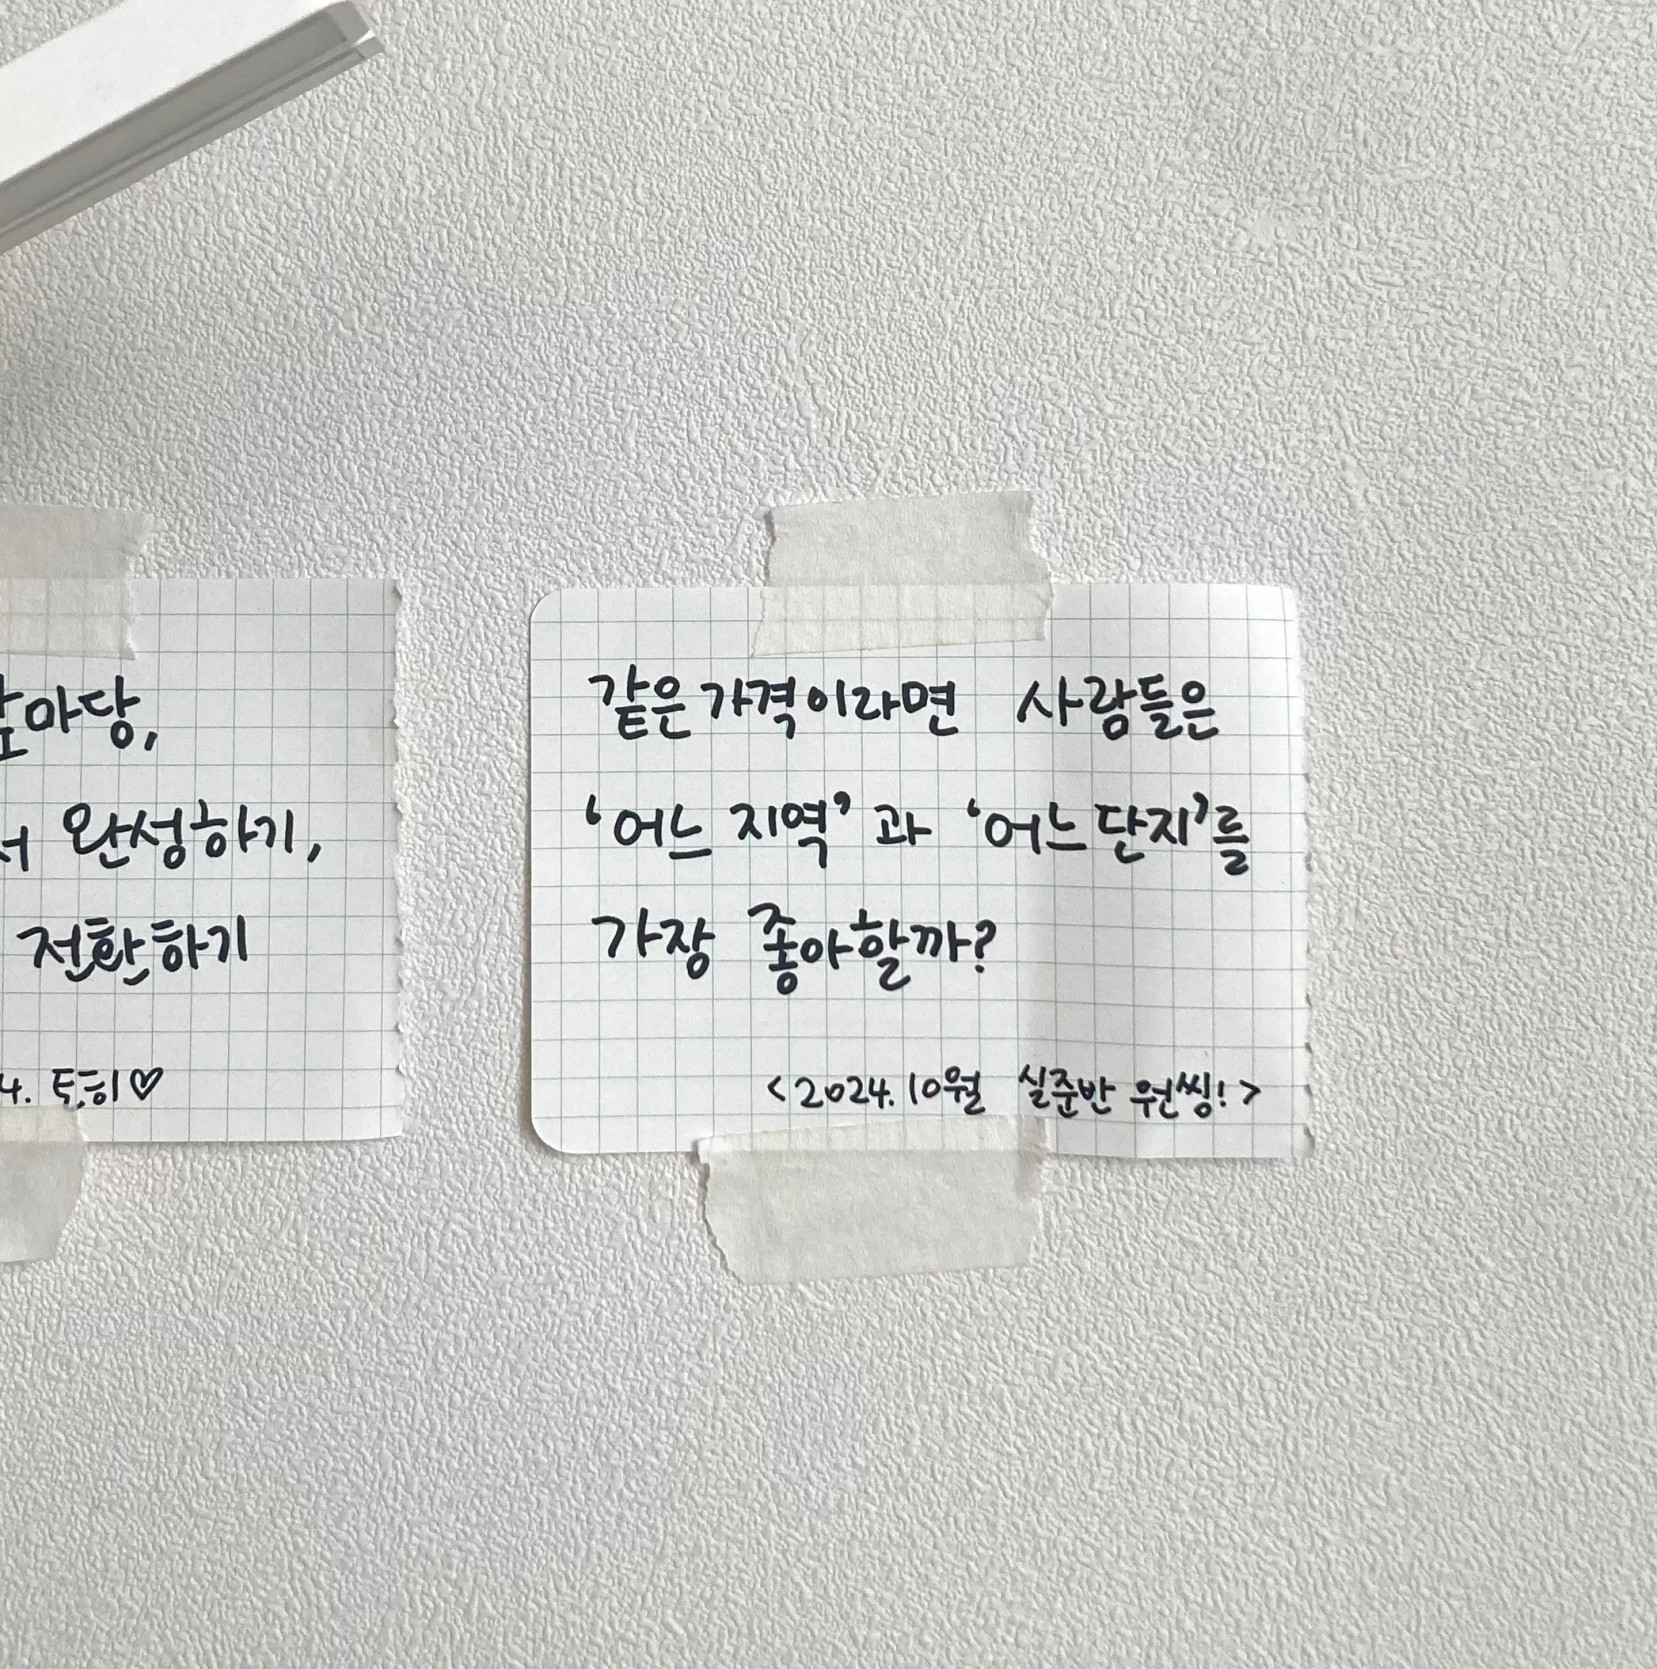 마당,
완성하기,
전환하기
4. 툐히♡
같은 가격이라면 사람들은
‘어느 지역’과 ‘어느 단지’를
가장 좋아할까?
<2024.10월 실준반 원씽!>